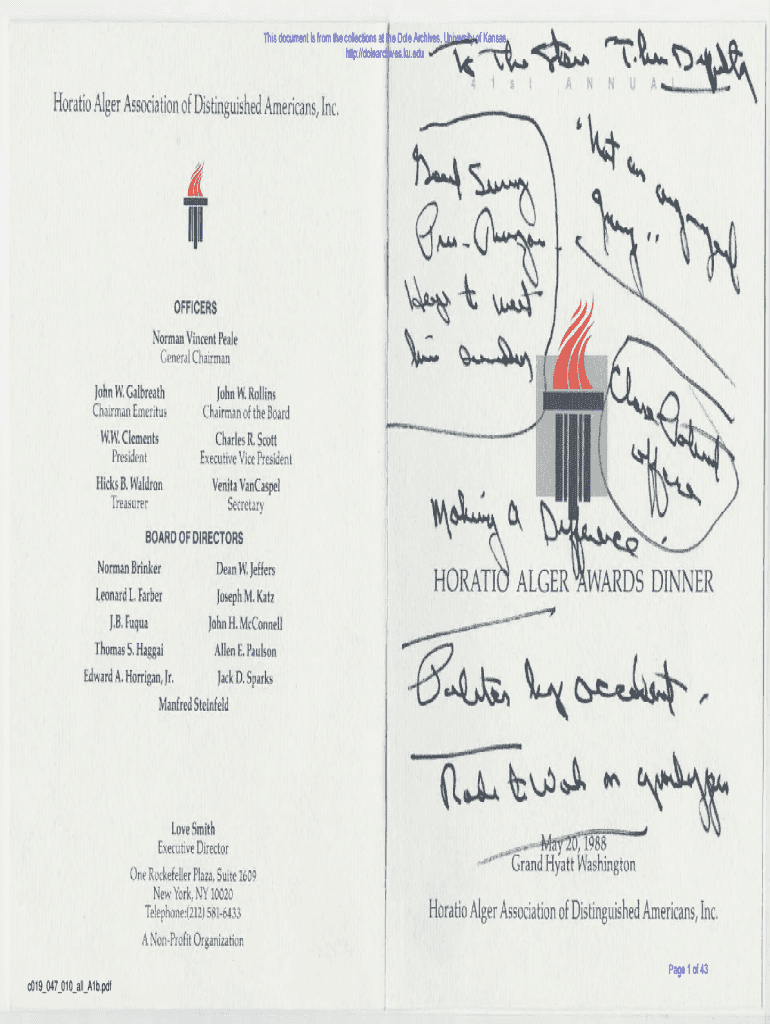 This document is from the collections at the Dole Archives, University of Kansas
http://dolearchives.ku.edu
Horatio Alger Association of Distinguished Americans, Inc.
OFFICERS
Norman Vincent Peale
General Chairman
John W. Galbreath
Chairman Emeritus
John W. Rollins
Chairman of the Board
W.W. Clements
President
Charles R. Scott
Executive Vice President
Hicks B. Waldron
Treasurer
Venita VanCaspel
Secretary
BOARD OF DIRECTORS
Norman Brinker
Dean W. Jeffers
Leonard L. Farber
Joseph M. Katz
J.B. Fuqua
John H. McConnell
Thomas S. Haggai
Allen E. Paulson
Edward A. Horrigan, Jr.
Jack D. Sparks
Manfred Steinfeld
Love Smith
Executive Director
One Rockefeller Plaza, Suite 1609
New York, NY 10020
Telephone:(212) 581-6433
A Non-Profit Organization
c019_047_010_all_A1b.pdf
To The Stars Thru
41st ANNUAL
"Not an
to meet
his
offered
Making a Difference.
HORATIO ALGER AWARDS DINNER
by accident.
Rode to Work on
May 20, 1988
Grand Hyatt Washington
Horatio Alger Association of Distinguished Americans, Inc.
Page 1 of 43